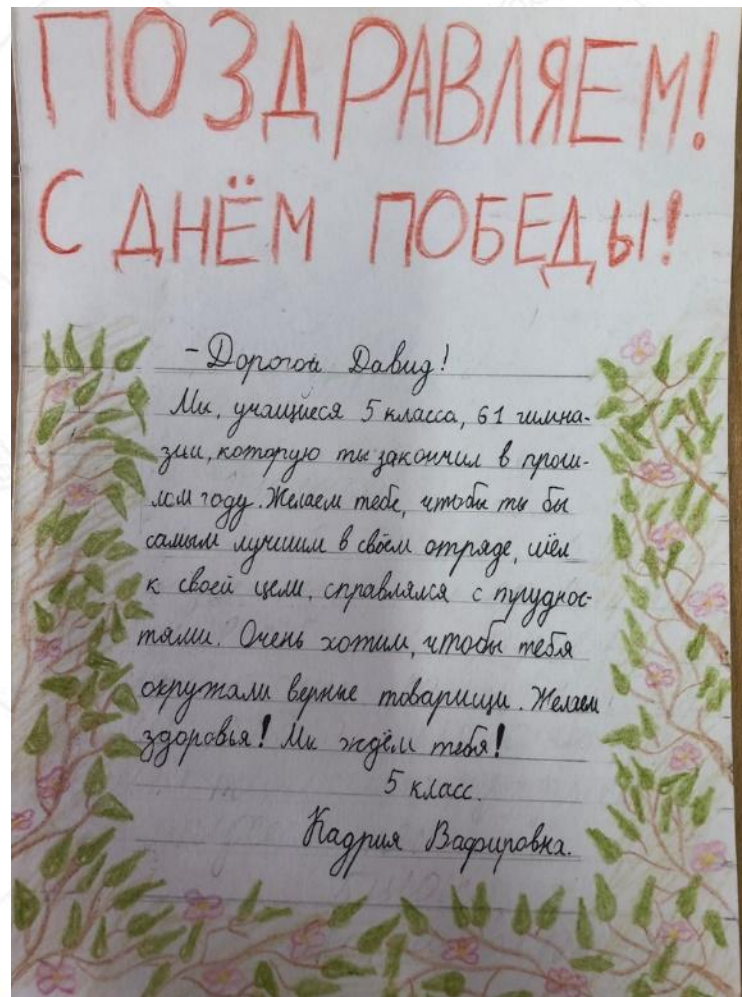 ПОЗДРАВЛЯЕМ!
С ДНЁМ ПОБЕДЫ!
- Дорогой Давид!
Мы, учащиеся 5 класса, 61 гимна-
зии, которую ты закончил в прош-
лом году. Желаем тебе, чтобы ты бы
самым лучшим в своём отряде, шёл
к своей цели, справлялся с труднос-
тями. Очень хотим, чтобы тебя
окружали верные товарищи. Желаем
здоровья! Мы ждём тебя!
5 класс.
Кадрия Вафировна.